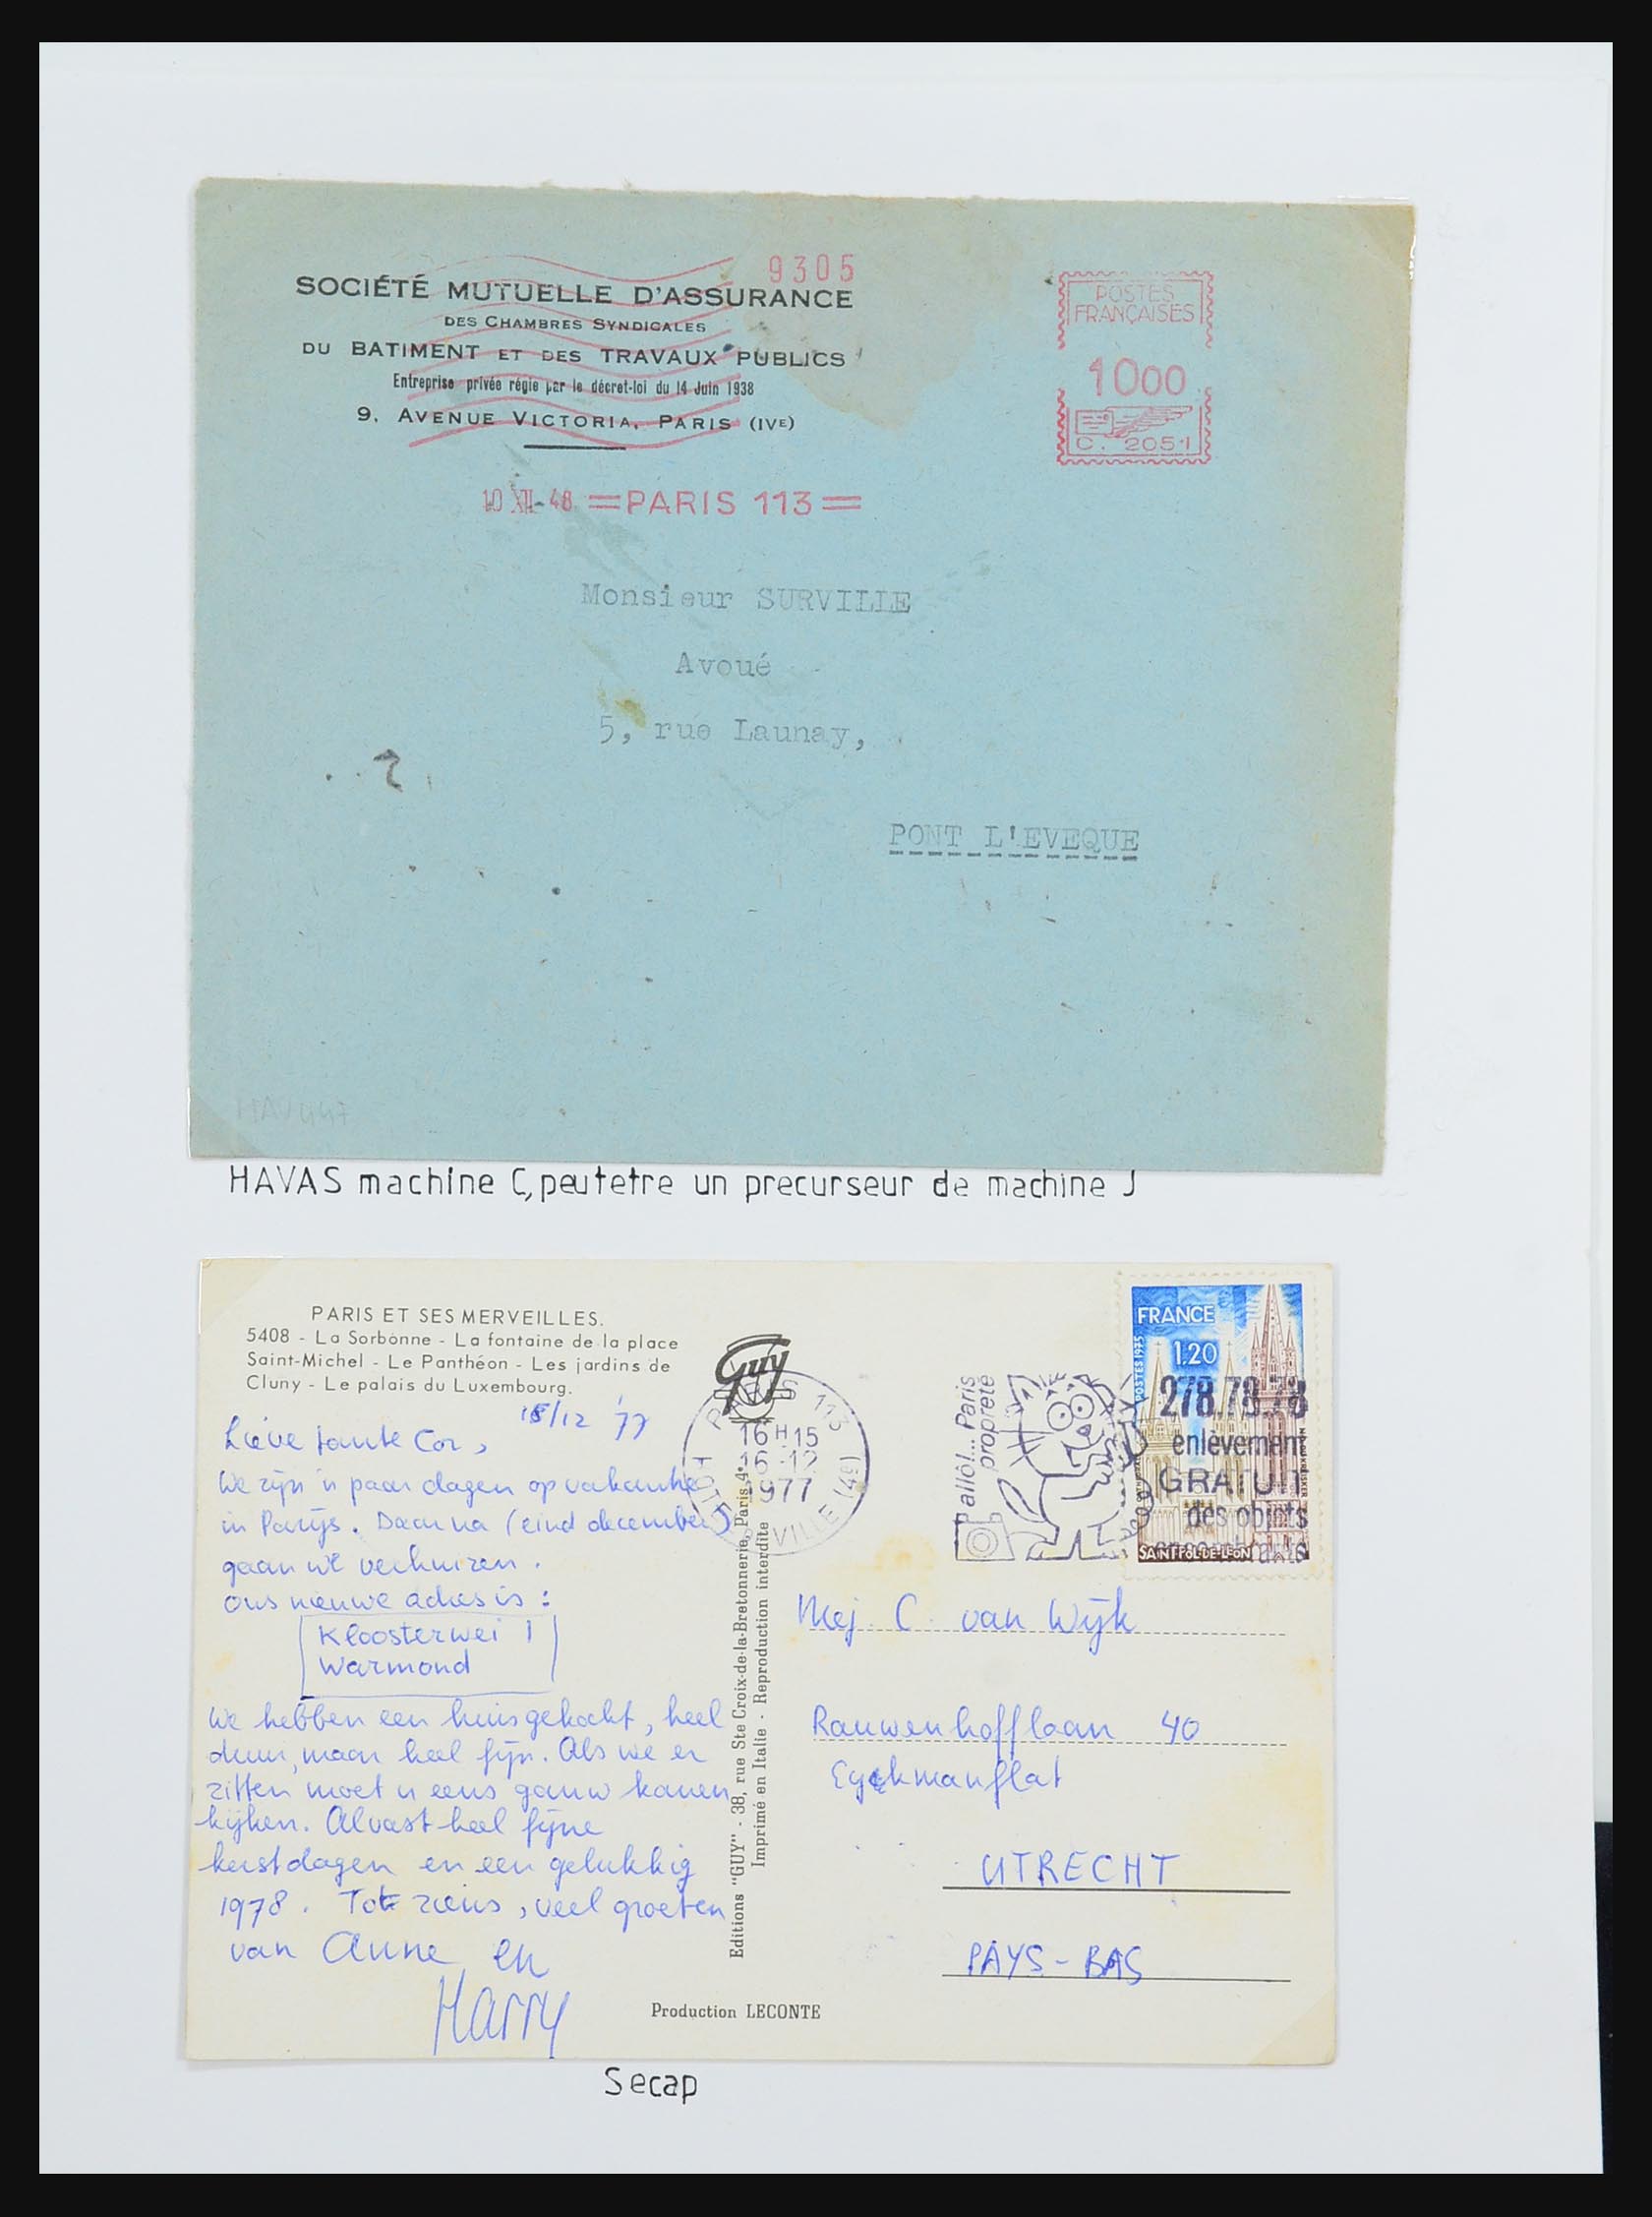 9305
SOCIÉTÉ MUTUELLE D'ASSURANCE
DES CHAMBRES SYNDICALES
DU BATIMENT ET DES TRAVAUX PUBLICS
Entreprise privée régie par le décret-loi du 14 Juin 1938
9, AVENUE VICTORIA, PARIS (IVE)
POSTES
FRANÇAISES
1000
C. 2051
10 XII-48 =PARIS 113=
Monsieur SURVILLE
Avoué
5, rue Launay,
PONT L'EVEQUE
HAVAS machine C, peutetre un precurseur de machine J
PARIS ET SES MERVEILLES.
5408 - La Sorbonne - La fontaine de la place
Saint-Michel - Le Panthéon - Les jardins de
Cluny - Le palais du Luxembourg.
Guy
PARIS 113
16 H 15
1977
HOTEL VILLE (4e)
Pallo!... Paris
propreté
FRANCE
1.20
POSTES 1975
278.78.78
enlèvement
GRATUIT
des objets
SAINT-POL-DE-LEON
15/12 '77
Lieve tante Cor,
We zijn 'n paar dagen op vakantie
in Parijs. Daarna (eind december)
gaan we verhuizen.
ons nieuwe adres is:
Kloosterwei 1
Warmond
We hebben een huis gekocht, heel
duur, maar heel fijn. Als we er
zitten moet u eens gauw komen
kijken. Alvast heel fijne
kerstdagen en een gelukkig
1978. Tot ziens, veel groeten
van Anne en
Harry
Editions "GUY" - 38, rue Ste Croix-de-la-Bretonnerie, Paris, 4e
Imprimé en Italie - Reproduction interdite
Mej. C. van Wijk
Rauwenhofflaan 40
Eyckmanflat
UTRECHT
PAYS-BAS
Production LECONTE
Secap